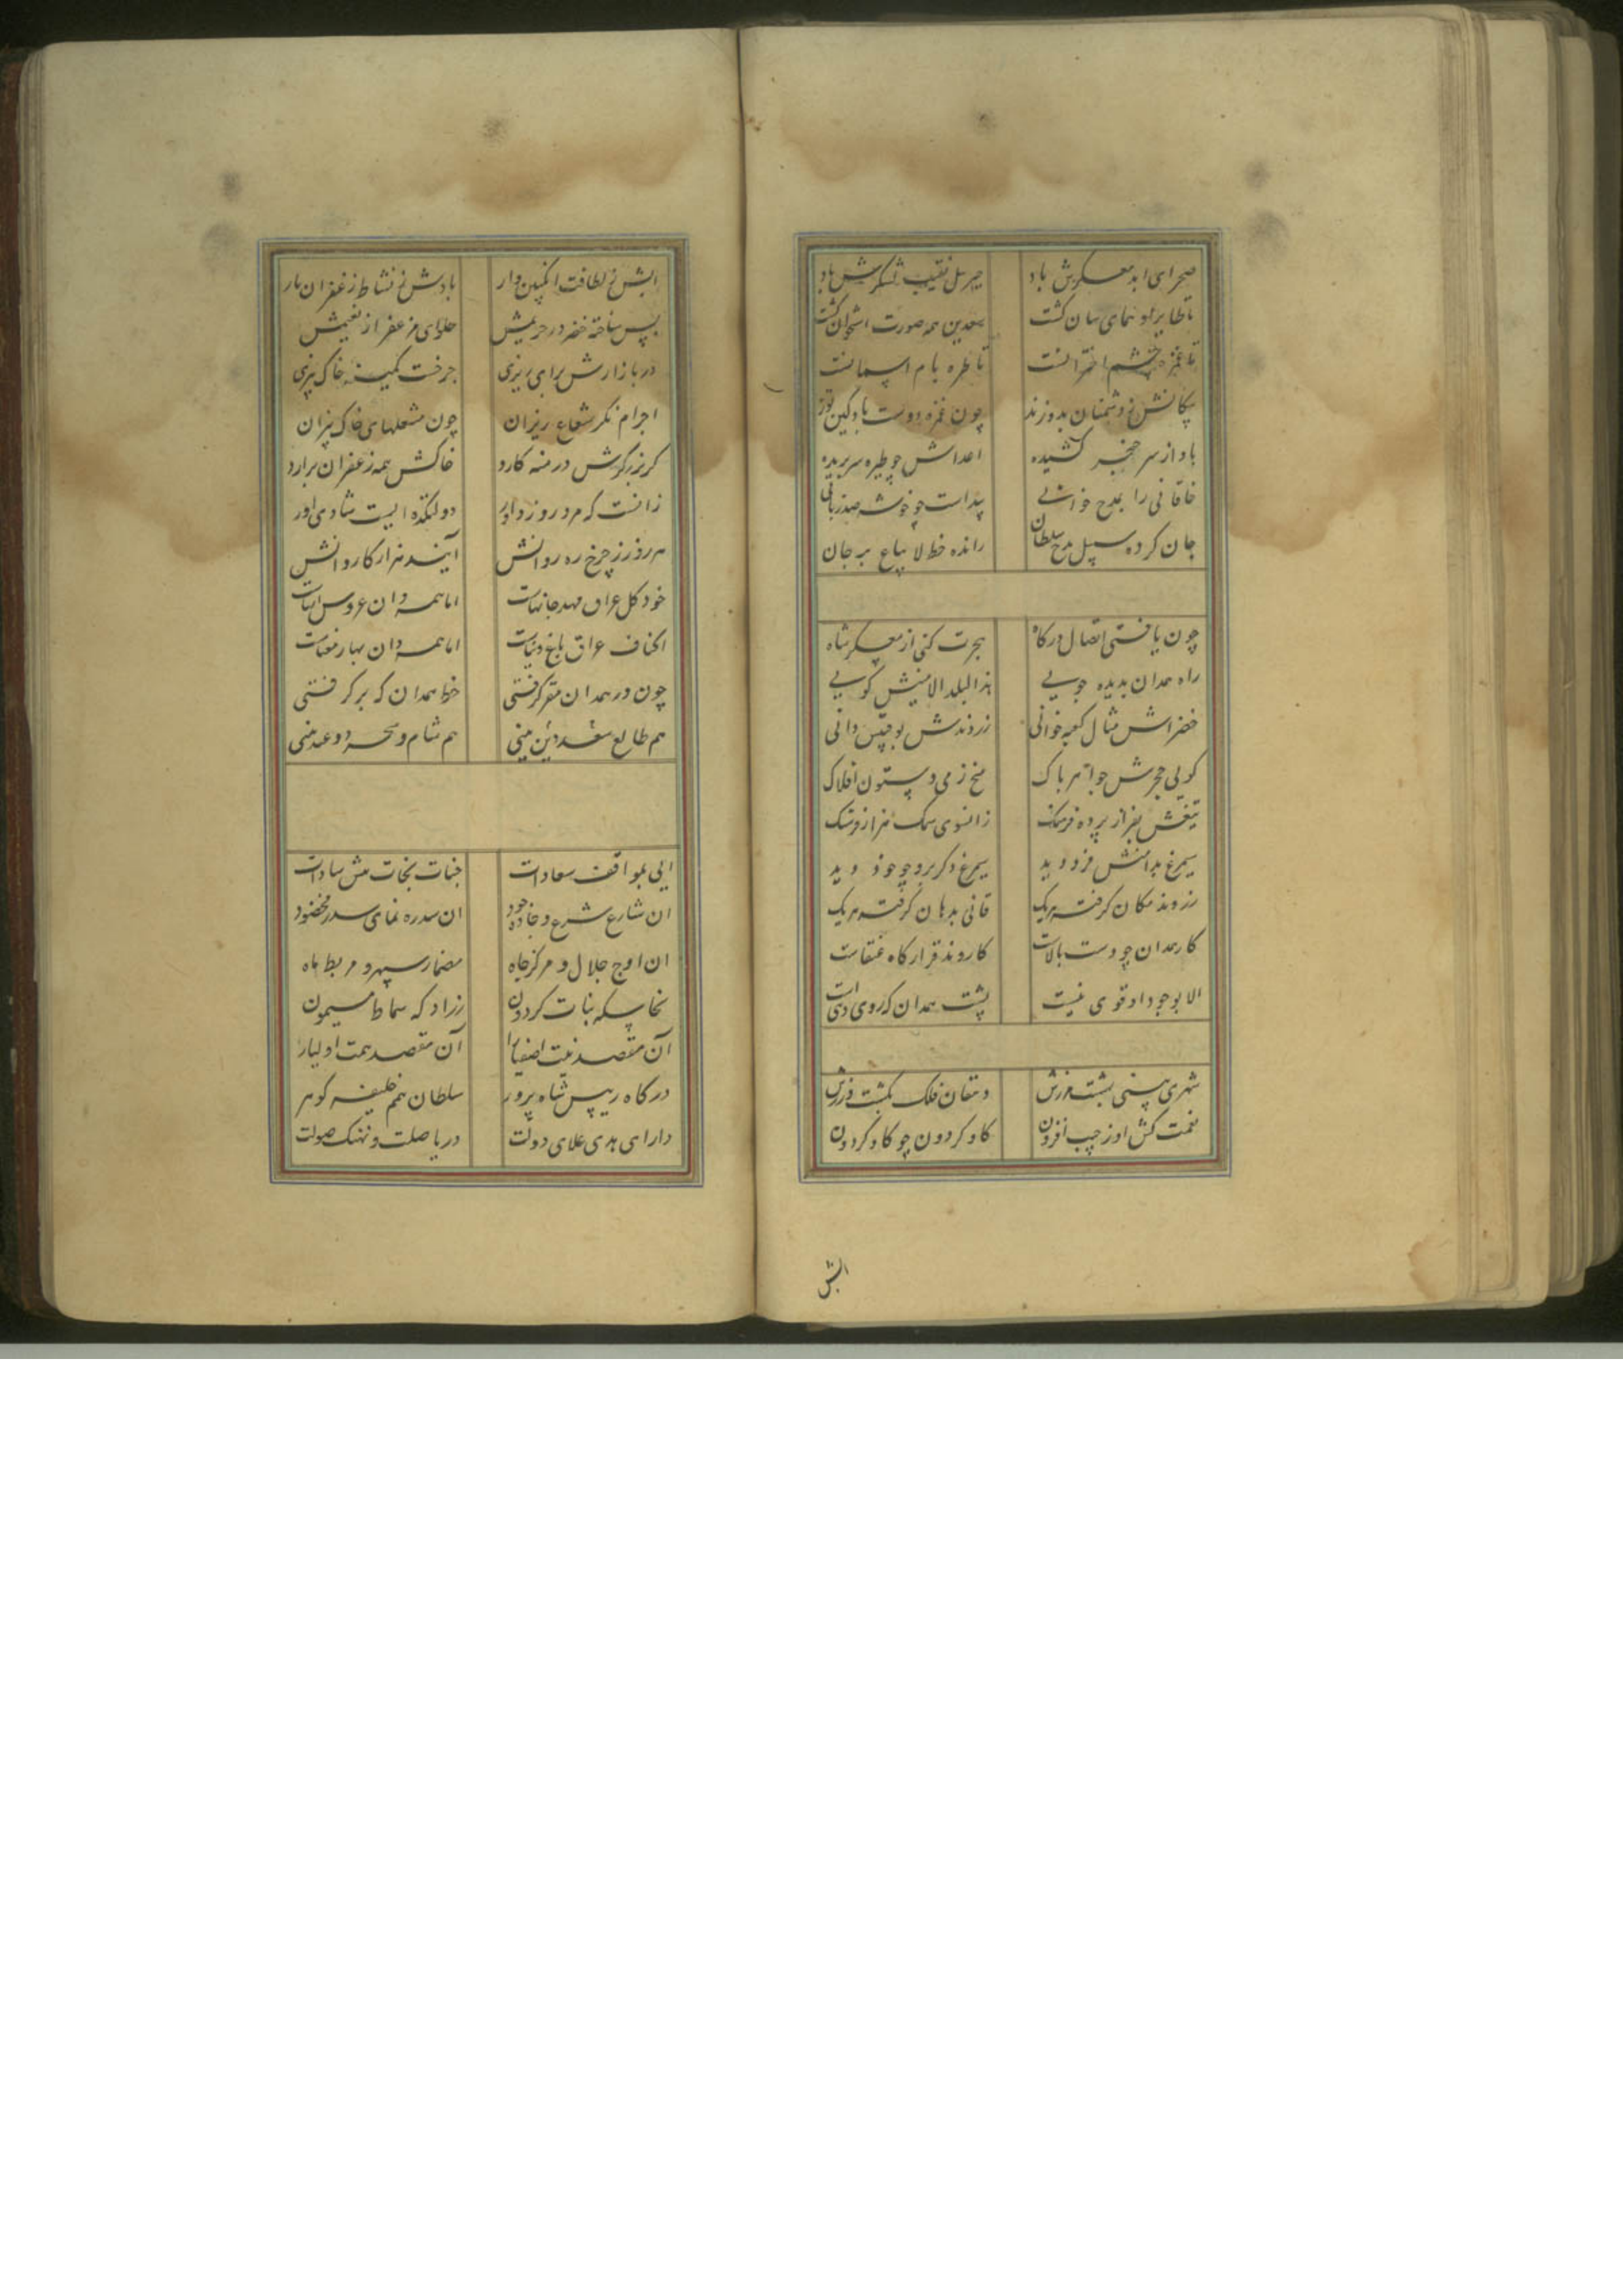 صحرای ابد معسکرش باد جبریل نقیب لشکرش باد
تا طایر او نمای سان گشت سعدین همه صورت استخوان گشت
تا غمزه چشم اخترانست تا طره بام آسمانست
پیکانش ز دشمنان بدوزند چون غمزه دوست باد کین توز
باد از سر خنجر کشیده اعداش چو طره سر بریده
خاقانی را بمدح خوانی پیداست چو خوشه صد زبانی
جان کرده سبیل مدح سلطان رانده خط لا یباع بر جان
چون یافتی اتصال درگاه هجرت کنی از معسکر شاه
راه همدان بدیده جویی هذا البلد الامینش گویی
خضراش مثال کعبه خوانی زروندش بوقبیس دانی
گویی حجرش جواهر پاک میخ زمی و ستون افلاک
تیغش بفراز برده فرسنگ زانسوی سمک هزار فرسنگ
سیمرغ بدامنش فرو دید سیمرغ دگر برو چو خود دید
رزوند مکان گرفته هریک قافی بدهان گرفته هریک
کار همدان چو دست بالاست کاروند قرارگاه عنقاست
الا بوجود او قوی نیست پشت همدان که روی دنی است
شهری بینی بهشت مرزش دهقان فلک بکشت ورزش
نعمت کش او ز چپ افزون گاو گردون چو گاو گردون
ابش
ابش ز لطافت انگبین وار بادش ز نشاط زعفران بار
پس ساخته خضر در حریمش حلوای مزعفر از نعیمش
در بازارش برای ریزی چرخست کمینه خاک بیزی
اجرام نگر شعاع ریزان چون مشعلهای خاک بیزان
گر بزرگوش درمنه کارد خاکش همه زعفران برآرد
زانست که مرد روز داور دولتکده ایست شادی آور
هر روز ز چرخ ره روانش آیند هزار کاروانش
خود کل عراق مهد جانهاست اما همدان عروس آنهاست
اکناف عراق باغ دنیاست اما همدان بهار معناست
چون در همدان مقر گرفتی خط همدان که بر گرفتی
هم طالع سعد دین بینی هم شام و سحر دو عید بینی
آیی بمواقف سعادات جنات نجات میش سادات
ان شارع شرع و جاده جود ان سدره نمای سدر مخضود
ان اوج جلال و مرکز جاه مضمار سپهر و مربط ماه
نخاسکه بنات گردون رزادکه سماط میمون
آن مقصد نیت اصفیا را آن مقصد همت اولیا را
درگاه رییس شاه پرور سلطان همم خلیفه گوهر
دارای هدی علای دولت دریا صلت و نهنگ صولت